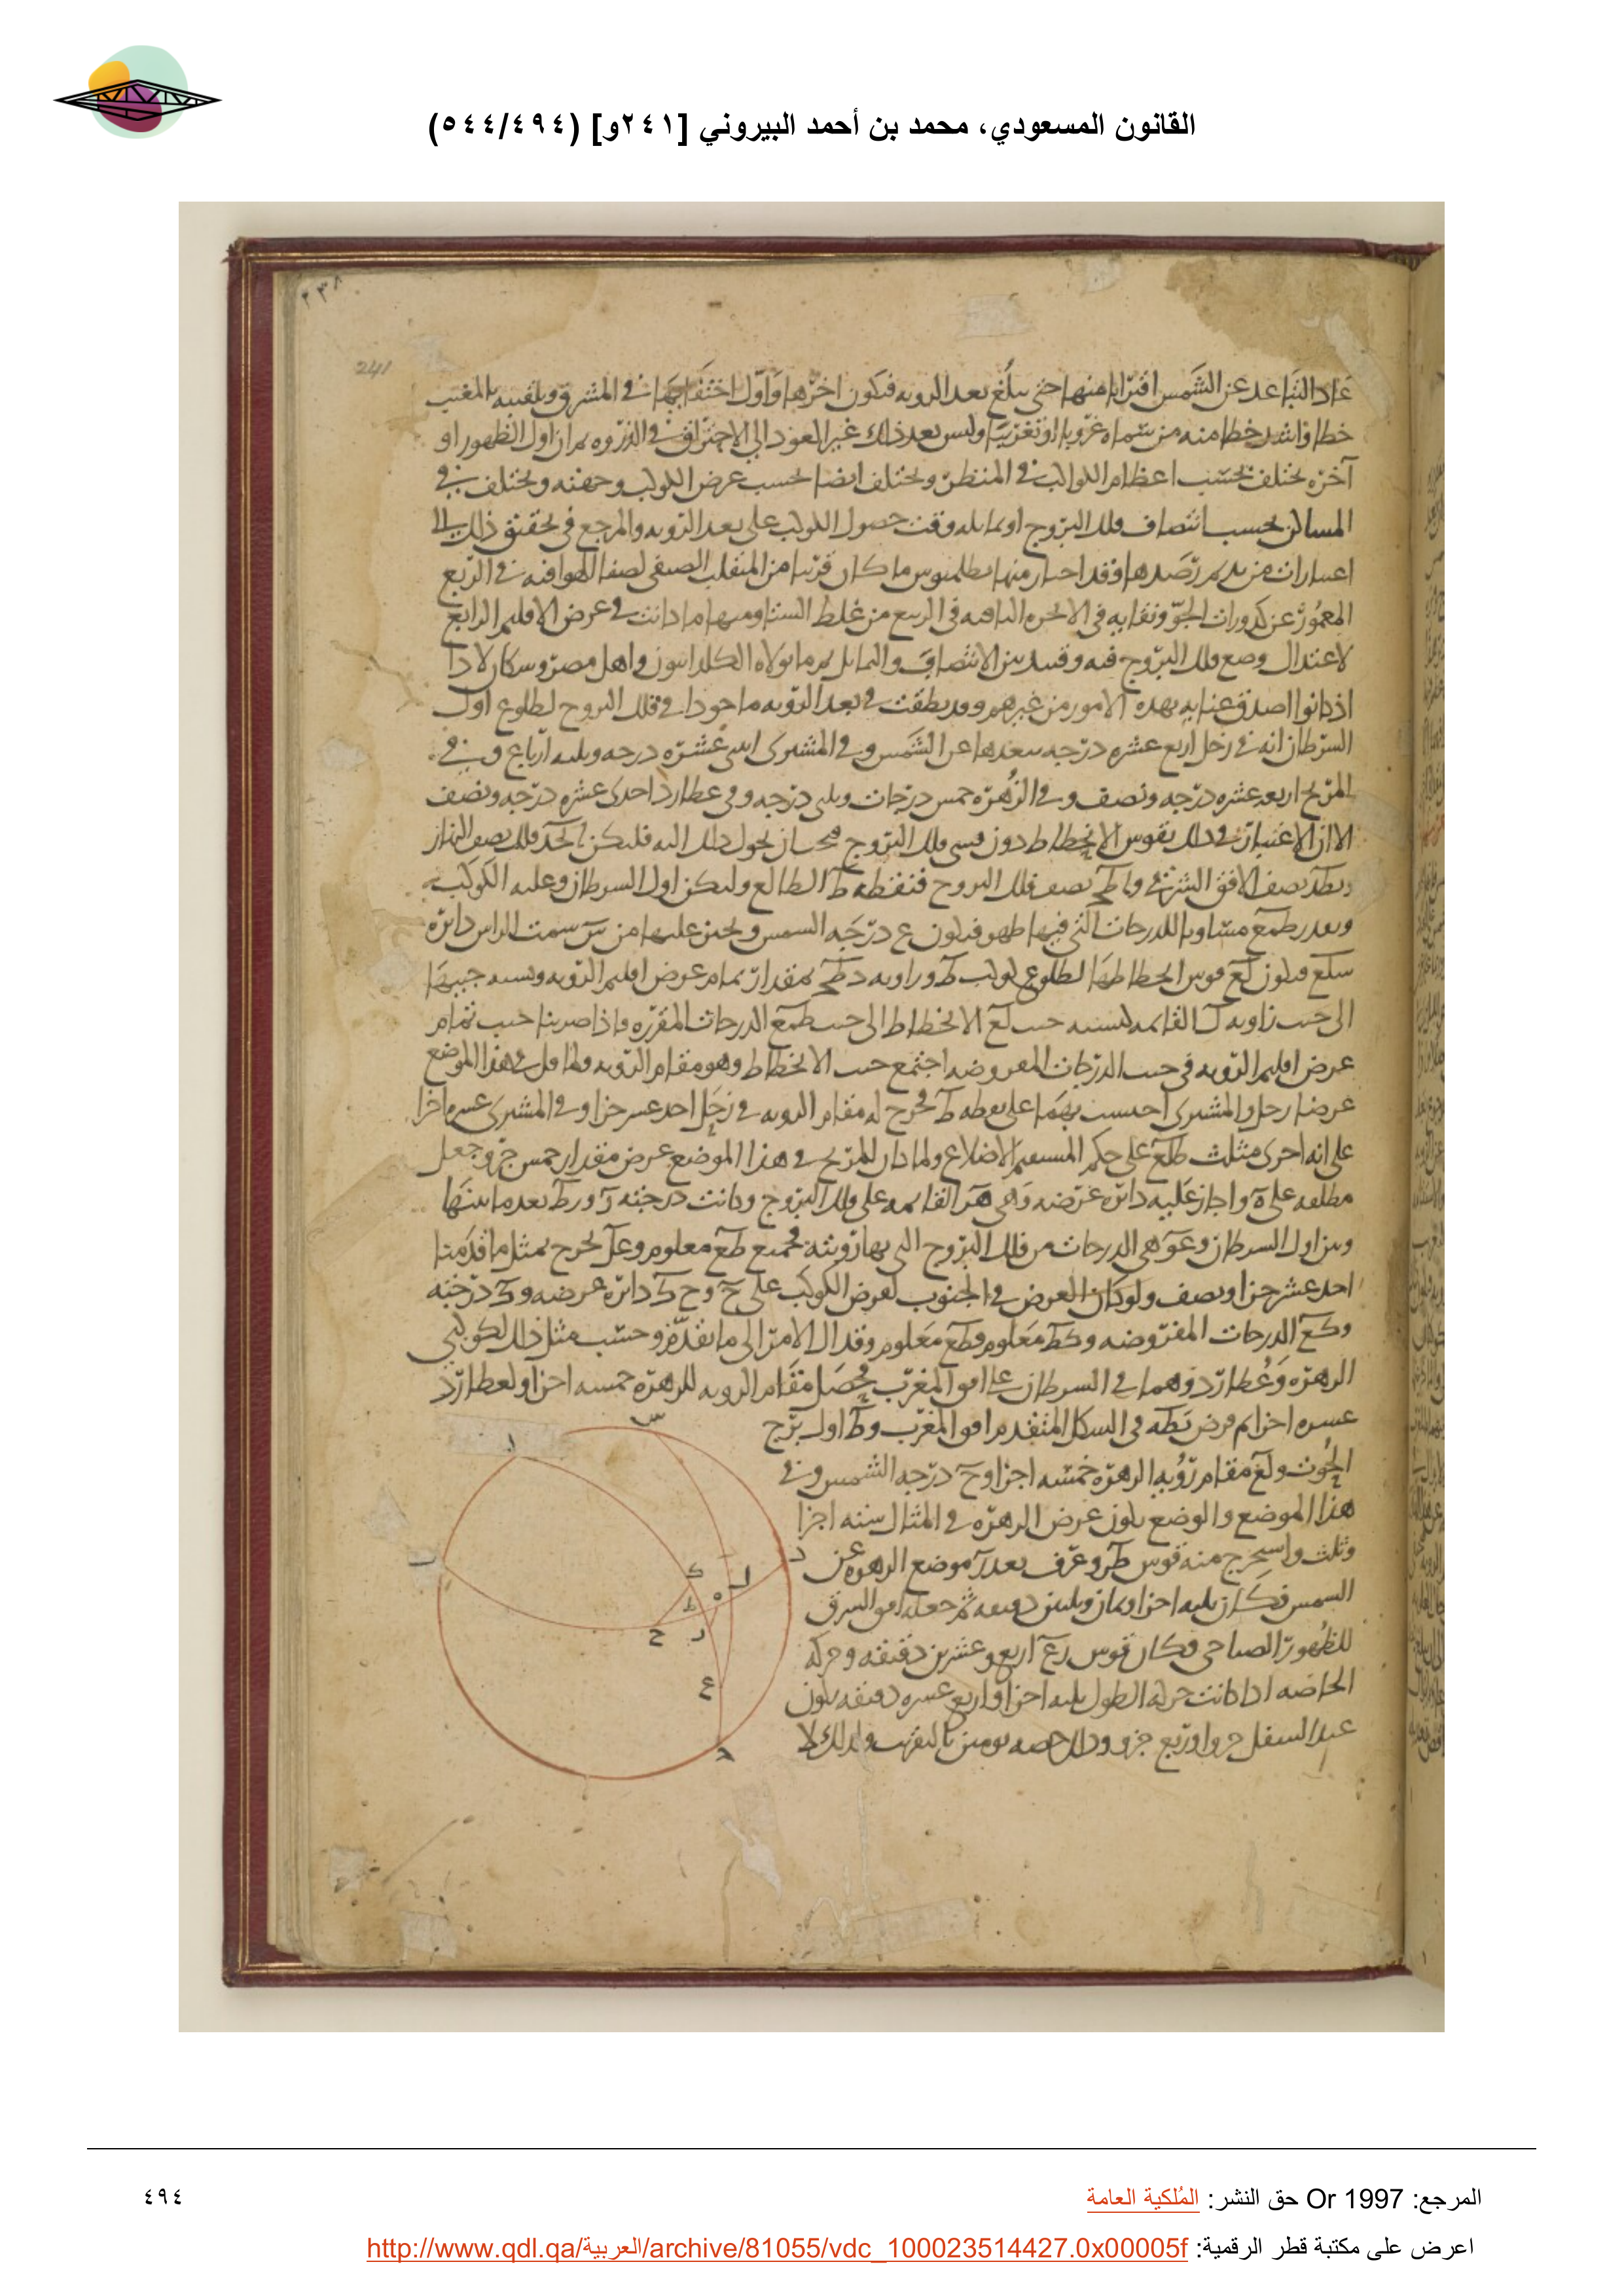 القانون المسعودي، محمد بن أحمد البيروني [٢٤١و] (٥٤٤/٤٩٤)
٢٣٨
241
عاد التباعد عن الشمس اقترابا منها حتى يبلغ بعد الرويه فيكون اخرها واول اختفايها في المشرق وتلقبه بالمغيب
خطا واشد خطا منه من سماه غروبا او تغريبا وليس بعد ذلك غير العود الى الاحتراق في الذروه ثم ان اول الظهور او
آخره يختلف بحسب اعظام الكواكب في المنظر ويختلف ايضا بحسب عرض الكوكب وجهته ويختلف في
المساكن بحسب انتصاف فلك البروج او تمايله وقت حصول الكوكب على بعد الرويه والمرجع في تحقيق ذلك الى
اعتبارات من رصدها وقد اختار منها بطلميوس ما كان قريبا من المنقلب الصيفي لصفا الهوا فيه في الربع
المعمور عن كدورات الجو ونقايه في الابخره الباقيه في الربيع من غلظ الشتا ومنها ما كانت في عرض الاقليم الرابع
لاعتدال وضع فلك البروج فيه وقيد بين الانتصاف والتمايل ثم ما تولاه الكلدانيون واهل مصر وسكان
اذ كانوا اصدق عنايه بهذه الامور من غيرهم وقد نطقت في بعد الرويه ماخوذا في فلك البروج لطلوع اول
السرطان انه في زحل اربع عشره درجه ببعدها عن الشمس وفي المشترى اثنى عشره درجه وثلثه ارباع وفي
المريخ اربعه عشره درجه ونصف وفي الزهره خمس درجات وثلثي درجه وفي عطارد احدى عشره درجه ونصف
الا ان الاعتبار في ذلك بقوس الانحطاط دون قسي فلك البروج فيجب ان يحول ذلك اليه فليكن ابجد فلك نصف النهار
وبطد نصف الافق الشرقي واطج نصف فلك البروج فنقطه ط الطالع وليكن اول السرطان وعليه الكوكب
وبعد طمع مساويا للدرجات التي فيها ظهر فيكون ع درجه الشمس ونجيز عليها من س سمت الراس دائره
سلع فيكون لع قوس انحطاطها لطلوع كوكب ط وزاويه دطج بمقدار تمام عرض اقليم الرويه ونسبه جيبها
الى جيب زاويه ل القائمه كنسبه جيب لع الانحطاط الى جيب طمع الدرجات المقرره فاذا ضربنا جيب تمام
عرض اقليم الرويه في جيب الدرجات المفروضه اجتمع جيب الانحطاط وهو مقام الرويه ولما قل في هذا الموضع
عرضا زحل والمشترى احتسب بهما على نقطه ط فخرج له مقام الرويه في زحل احد عشر جزا وفي المشترى عشره اجزا
على انه اجرى مثلث طلع على حكم المستقيم الاضلاع ولما كان للمريخ في هذا الموضع عرض مقدار خمس جزو جعل
مطلعه على ه واجاز عليه دائره عرضه وهي هر القائمه على فلك البروج وكانت درجته ر ورط بعد ما بينها
وبين اول السرطان وعر هي الدرجات من فلك البروج التي بها رويته فجميع طع معلوم وعل يخرج بمثل ما قدمنا
احد عشر جزا ونصف ولو كان العرض في الجنوب لعرض الكوكب على ح وح ك دائره عرضه وك درجته
وكع الدرجات المفروضه وكط معلوم وطع معلوم وقد ال الامر الى ما تقدم وحسب مثل ذلك لكوكبي
الزهره وعطارد وهما في السرطان على افق المغرب فحصل مقام الرويه للزهره خمسه اجزا ولعطارد
عشره اجزا ثم فرض بطه في الشكل المتقدم افق المغرب وط اول برج
الحوت ولع مقام رويه الزهره خمسه اجزا وح درجه الشمس وفي
هذا الموضع والوضع يكون عرض الزهره في المثال سته اجزا
وثلث واستخرج منه قوس طر وعرف بعد ر موضع الزهره عن
الشمس فكان ثلثه اجزا وثمان وثلثين دقيقه ثم جعله افق الشرق
للظهور الصباحي فكان قوس رع اربع وعشرين دقيقه وحركه
الخاصه اذا كانت حركه الطول ثلثه اجزا واربع عشره دقيقه يكون
عند السفل جزوا وربع جزو وذلك حصه يومين بالتقريب ولذلك لا
س
ا
ب
د
ك
ل
ه
ط
ح
ر
ع
ج
المرجع: Or 1997 حق النشر: المُلكية العامة
٤٩٤
اعرض على مكتبة قطر الرقمية: http://www.qdl.qa/العربية/archive/81055/vdc_100023514427.0x00005f